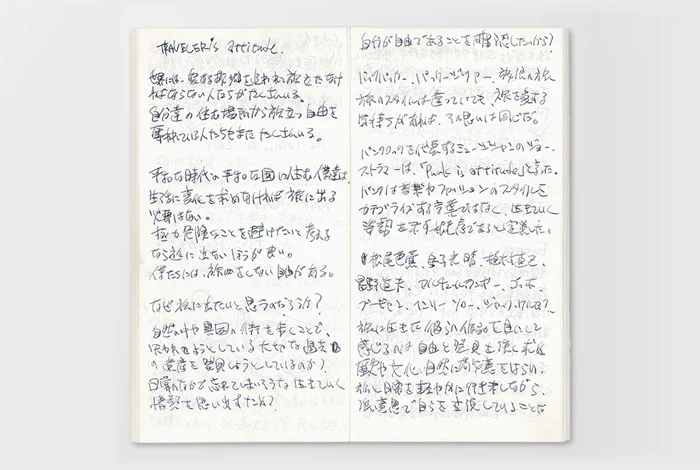 TRAVELER's attitude.
世界には、愛する故郷を追われ旅立たなけ
ればならない人たちがたくさんいる。
自分達の住む場所から旅立つ自由を
奪われている人たちもまたたくさんいる。
平和な時代の平和な国に住む僕達は
生活に変化を求めなければ旅に出る
必要はない。
極力危険なことを避けたいと考える
なら旅に出ないほうが良い。
僕たちには、旅をしない自由がある。
なぜ旅に出たいと思うのだろうか?
自然の中や異国の街を歩くことで、
失われようとしている大切な過去
の遺産を発見しようとしているのか?
日常のなかで忘れてしまいそうな生きていく
姿勢を思い出すため?
自分が自由であることを確認したいから?
バックパッカー、バッグ 旅
旅のスタイルは違っていても、旅を愛する
気持ちがあれば、その思いは同じだ。
パンクロックを代表するミュージシャンのジョー・
ストラマーは、「Punk is attitude」と言った。
パンクは音楽やファッションのスタイルを
カテゴライズする言葉ではなく、生きていく
姿勢を示す言葉であると定義した。
松尾芭蕉、金子光晴、植村直己、
星野道夫、ゴッホ、
ゴーギャン、ヘンリー・ソロー、ジャック・ケルアック…
旅に生きた彼らの作品を目にして
感じるのは自由と発見を強く求め
歴史や文化、自然に敬意をはらい、
旅と日常を軽やかに行き来しながら、
強い意思で自らを表現していることだ